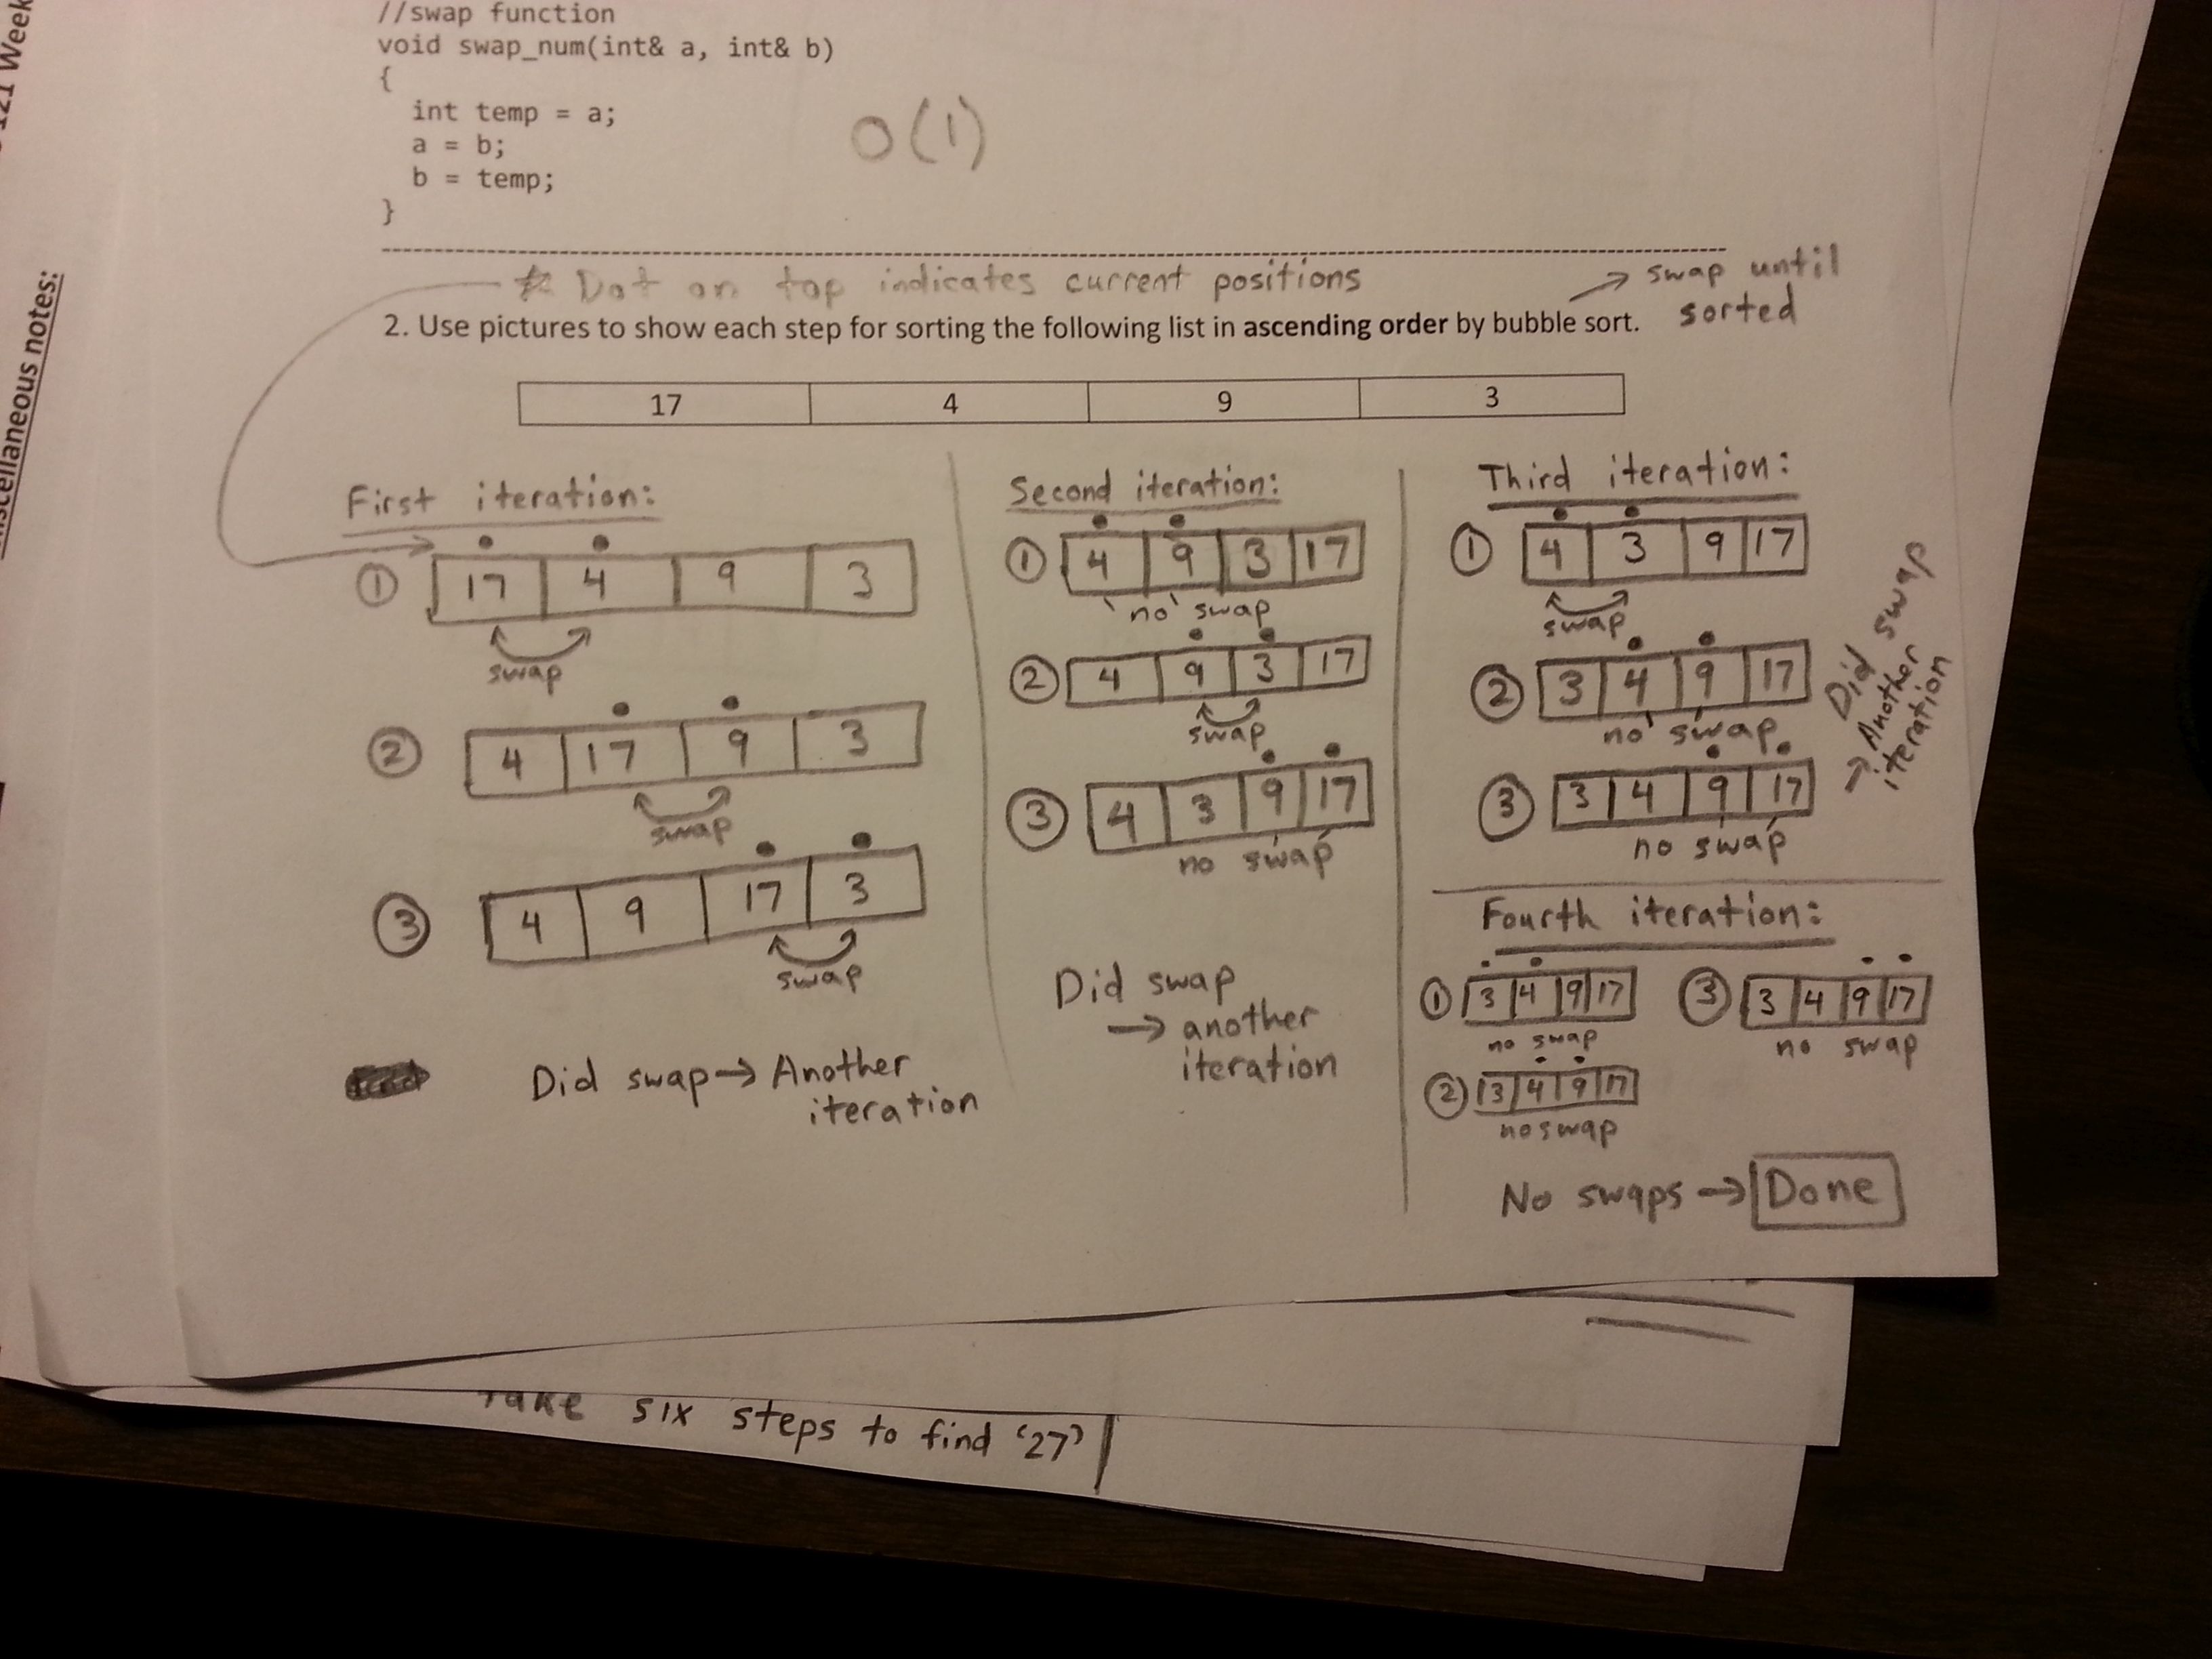 121 Week
Miscellaneous notes:
//swap function
void swap_num(int& a, int& b)
{
int temp = a;
a = b;
b = temp;
}
O(1)
* Dot on top indicates current positions
→ swap until
sorted
2. Use pictures to show each step for sorting the following list in ascending order by bubble sort.
17 4 9 3
First iteration:
① 17 4 9 3
swap
② 4 17 9 3
swap
③ 4 9 17 3
swap
Did swap → Another
iteration
Second iteration:
① 4 9 3 17
no swap
② 4 9 3 17
swap
③ 4 3 9 17
no swap
Did swap
→ another
iteration
Third iteration:
① 4 3 9 17
swap
② 3 4 9 17
no swap
③ 3 4 9 17
no swap
Did swap
→ Another
iteration
Fourth iteration:
① 3 4 9 17
no swap
② 3 4 9 17
no swap
③ 3 4 9 17
no swap
No swaps → Done
Take six steps to find '27'